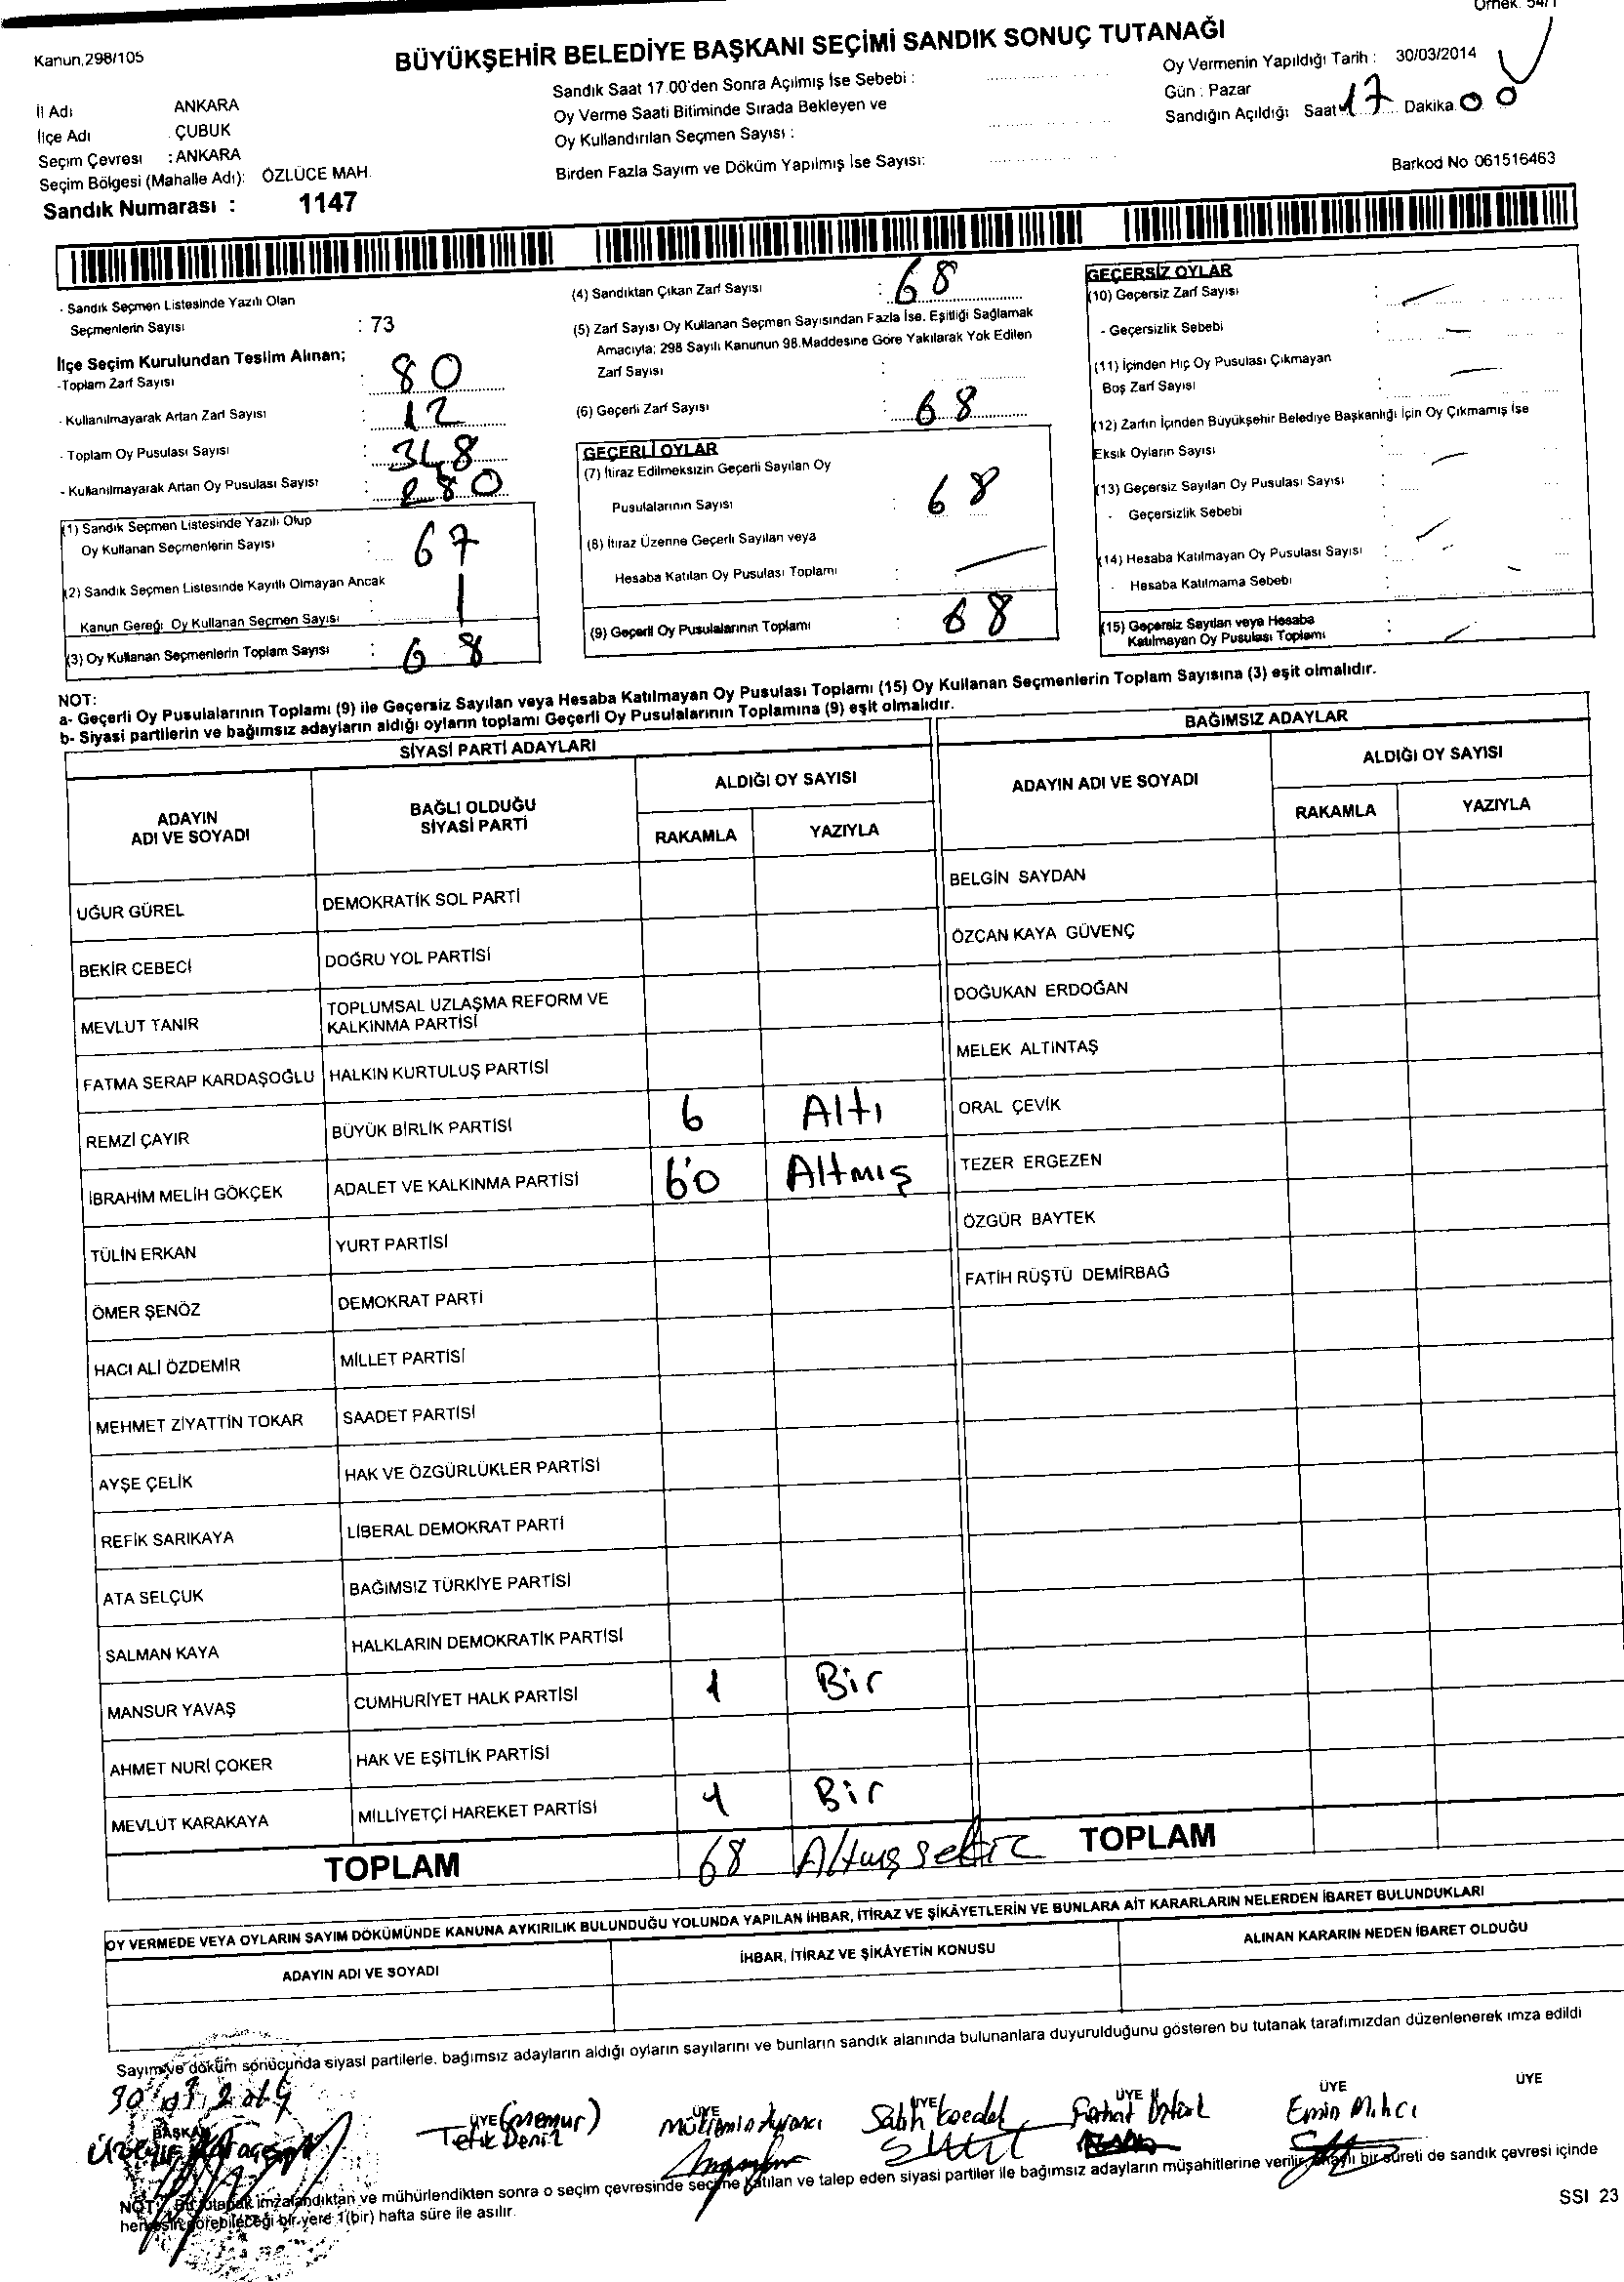 Örnek: 54/1
Kanun,298/105
BÜYÜKŞEHİR BELEDİYE BAŞKANI SEÇİMİ SANDIK SONUÇ TUTANAĞI
İl Adı ANKARA
İlçe Adı ÇUBUK
Seçim Çevresi : ANKARA
Seçim Bölgesi (Mahalle Adı): ÖZLÜCE MAH.
Sandık Numarası : 1147
Sandık Saat 17.00'den Sonra Açılmış İse Sebebi :
Oy Verme Saati Bitiminde Sırada Bekleyen ve
Oy Kullandırılan Seçmen Sayısı :
Birden Fazla Sayım ve Döküm Yapılmış İse Sayısı:
Oy Vermenin Yapıldığı Tarih : 30/03/2014
Gün : Pazar
Sandığın Açıldığı Saat 17 Dakika 00
Barkod No 061516463
- Sandık Seçmen Listesinde Yazılı Olan
Seçmenlerin Sayısı : 73
İlçe Seçim Kurulundan Teslim Alınan;
-Toplam Zarf Sayısı : 80
- Kullanılmayarak Artan Zarf Sayısı : 12
- Toplam Oy Pusulası Sayısı : 348
- Kullanılmayarak Artan Oy Pusulası Sayısı : 280
(1) Sandık Seçmen Listesinde Yazılı Olup
Oy Kullanan Seçmenlerin Sayısı : 67
(2) Sandık Seçmen Listesinde Kayıtlı Olmayan Ancak
Kanun Gereği Oy Kullanan Seçmen Sayısı : 1
(3) Oy Kullanan Seçmenlerin Toplam Sayısı : 68
(4) Sandıktan Çıkan Zarf Sayısı : 68
(5) Zarf Sayısı Oy Kullanan Seçmen Sayısından Fazla İse, Eşitliği Sağlamak
Amacıyla; 298 Sayılı Kanunun 98.Maddesine Göre Yakılarak Yok Edilen
Zarf Sayısı :
(6) Geçerli Zarf Sayısı : 68
GEÇERLİ OYLAR
(7) İtiraz Edilmeksizin Geçerli Sayılan Oy
Pusulalarının Sayısı : 68
(8) İtiraz Üzerine Geçerli Sayılan veya
Hesaba Katılan Oy Pusulası Toplamı : —
(9) Geçerli Oy Pusulalarının Toplamı : 68
GEÇERSİZ OYLAR
(10) Geçersiz Zarf Sayısı : —
- Geçersizlik Sebebi : —
(11) İçinden Hiç Oy Pusulası Çıkmayan
Boş Zarf Sayısı : —
(12) Zarfın İçinden Büyükşehir Belediye Başkanlığı İçin Oy Çıkmamış İse
Eksik Oyların Sayısı : —
(13) Geçersiz Sayılan Oy Pusulası Sayısı :
- Geçersizlik Sebebi : —
(14) Hesaba Katılmayan Oy Pusulası Sayısı : —
- Hesaba Katılmama Sebebi : —
(15) Geçersiz Sayılan veya Hesaba
Katılmayan Oy Pusulası Toplamı : —
NOT:
a- Geçerli Oy Pusulalarının Toplamı (9) ile Geçersiz Sayılan veya Hesaba Katılmayan Oy Pusulası Toplamı (15) Oy Kullanan Seçmenlerin Toplam Sayısına (3) eşit olmalıdır.
b- Siyasi partilerin ve bağımsız adayların aldığı oyların toplamı Geçerli Oy Pusulalarının Toplamına (9) eşit olmalıdır.
SİYASİ PARTİ ADAYLARI
ADAYIN ADI VE SOYADI BAĞLI OLDUĞU SİYASİ PARTİ ALDIĞI OY SAYISI
RAKAMLA YAZIYLA
UĞUR GÜREL DEMOKRATİK SOL PARTİ
BEKİR CEBECİ DOĞRU YOL PARTİSİ
MEVLUT TANIR TOPLUMSAL UZLAŞMA REFORM VE KALKINMA PARTİSİ
FATMA SERAP KARDAŞOĞLU HALKIN KURTULUŞ PARTİSİ
REMZİ ÇAYIR BÜYÜK BİRLİK PARTİSİ 6 Altı
İBRAHİM MELİH GÖKÇEK ADALET VE KALKINMA PARTİSİ 60 Altmış
TÜLİN ERKAN YURT PARTİSİ
ÖMER ŞENÖZ DEMOKRAT PARTİ
HACI ALİ ÖZDEMİR MİLLET PARTİSİ
MEHMET ZİYATTİN TOKAR SAADET PARTİSİ
AYŞE ÇELİK HAK VE ÖZGÜRLÜKLER PARTİSİ
REFİK SARIKAYA LİBERAL DEMOKRAT PARTİ
ATA SELÇUK BAĞIMSIZ TÜRKİYE PARTİSİ
SALMAN KAYA HALKLARIN DEMOKRATİK PARTİSİ
MANSUR YAVAŞ CUMHURİYET HALK PARTİSİ 1 Bir
AHMET NURİ ÇOKER HAK VE EŞİTLİK PARTİSİ
MEVLÜT KARAKAYA MİLLİYETÇİ HAREKET PARTİSİ 1 Bir
TOPLAM 68 Altmışsekiz
BAĞIMSIZ ADAYLAR
ADAYIN ADI VE SOYADI ALDIĞI OY SAYISI
RAKAMLA YAZIYLA
BELGİN SAYDAN
ÖZCAN KAYA GÜVENÇ
DOĞUKAN ERDOĞAN
MELEK ALTINTAŞ
ORAL ÇEVİK
TEZER ERGEZEN
ÖZGÜR BAYTEK
FATİH RÜŞTÜ DEMİRBAĞ
TOPLAM
OY VERMEDE VEYA OYLARIN SAYIM DÖKÜMÜNDE KANUNA AYKIRILIK BULUNDUĞU YOLUNDA YAPILAN İHBAR, İTİRAZ VE ŞİKÂYETLERİN VE BUNLARA AİT KARARLARIN NELERDEN İBARET BULUNDUKLARI
ADAYIN ADI VE SOYADI İHBAR, İTİRAZ VE ŞİKÂYETİN KONUSU ALINAN KARARIN NEDEN İBARET OLDUĞU
Sayım ve döküm sonucunda siyasi partilerle, bağımsız adayların aldığı oyların sayılarını ve bunların sandık alanında bulunanlara duyurulduğunu gösteren bu tutanak tarafımızdan düzenlenerek imza edildi
30 03 2014
BAŞKAN ÜYE ÜYE ÜYE ÜYE ÜYE ÜYE
(memur)
Tefik Deniz
Emin Mıhcı
NOT: Bu tutanak imzalandıktan ve mühürlendikten sonra o seçim çevresinde seçime katılan ve talep eden siyasi partiler ile bağımsız adayların müşahitlerine verilir, onaylı bir sureti de sandık çevresi içinde
herkesin görebileceği bir yere 1(bir) hafta süre ile asılır.
SSI 23